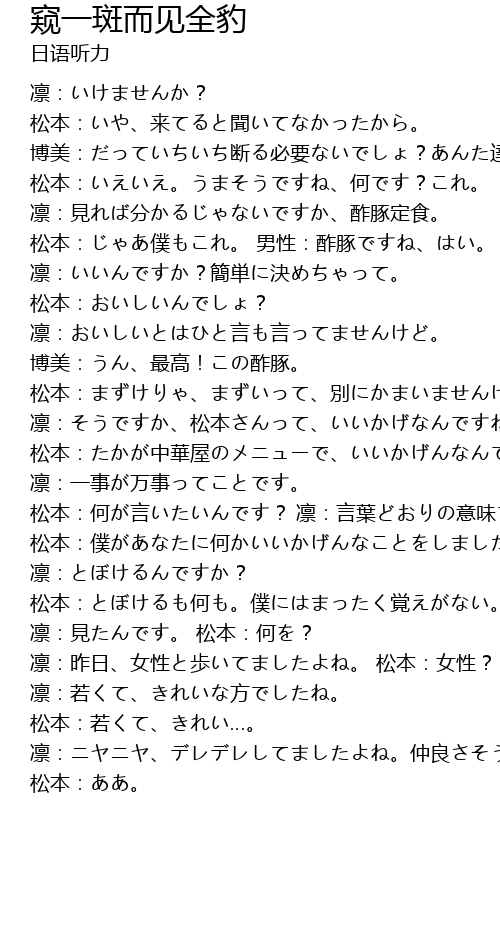 窥一斑而见全豹
日语听力
凛：いけませんか？
松本：いや、来てると聞いてなかったから。
博美：だっていちいち断る必要ないでしょ？あんた
松本：いえいえ。うまそうですね、何です？これ。
凛：見れば分かるじゃないですか、酢豚定食。
松本：じゃあ僕もこれ。 男性：酢豚ですね、はい。
凛：いいんですか？簡単に決めちゃって。
松本：おいしいんでしょ？
凛：おいしいとはひと言も言ってませんけど。
博美：うん、最高！この酢豚。
松本：まずけりゃ、まずいって、別にかまいません
凛：そうですか、松本さんって、いいかげなんです
松本：たかが中華屋のメニューで、いいかげんなん
凛：一事が万事ってことです。
松本：何が言いたいんです？ 凛：言葉どおりの意味
松本：僕があなたに何かいいかげんなことをしまし
凛：とぼけるんですか？
松本：とぼけるも何も。僕にはまったく覚えがない。
凛：見たんです。 松本：何を？
凛：昨日、女性と歩いてましたよね。 松本：女性？
凛：若くて、きれいな方でしたね。
松本：若くて、きれい…。
凛：ニヤニヤ、デレデレしてましたよね。仲良さそ
松本：ああ。